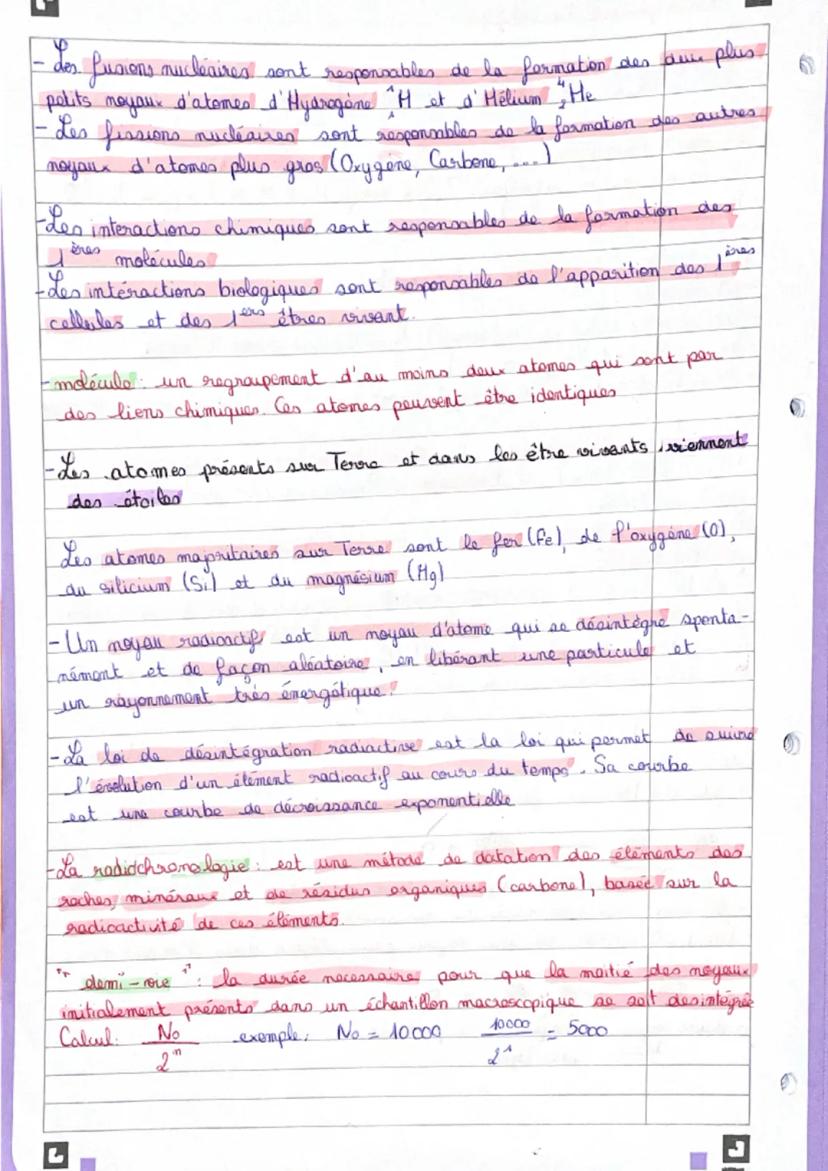 - Les fusions nucléaires sont responsables de la formation des deux plus
petits noyaux d'atomes d'Hydrogène ¹₁H et d'Hélium ⁴₂He
- Les fissions nucléaires sont responsables de la formation des autres
noyaux d'atomes plus gros (Oxygène, Carbone, ....)
- Les interactions chimiques sont responsables de la formation des
1ères molécules
- Les intéractions biologiques sont responsables de l'apparition des 1ères
cellules et des 1ers êtres vivant.
- molécule : un regroupement d'au moins deux atomes qui sont par
des liens chimiques. Ces atomes peuvent être identiques
- Les atomes présents sur Terre et dans les être vivants viennent
des étoiles
Les atomes majoritaires sur Terre sont le fer (Fe), de l'oxygène (O),
du silicium (Si) et du magnésium (Mg)
- Un noyau radioactif est un noyau d'atome qui se désintègre sponta-
nément et de façon aléatoire, en libérant une particule et
un rayonnement très énergétique.
- La loi de désintégration radiactive est la loi qui permet de suivre
l'évolution d'un élément radioactif au cours du temps. Sa courbe
est une courbe de décroissance exponentielle
- La radiochronologie : est une métode de datation des éléments des
roches, minéraux et de résidus organiques (carbone), basée sur la
radioactivité de ces éléments.
" demi-vie " : la durée necessaire pour que la moitié des noyaux
initialement présents dans un échantillon macroscopique se soit desintégrée
Calcul: N₀/2ⁿ exemple: N₀ = 10000 10000/2¹ = 5000